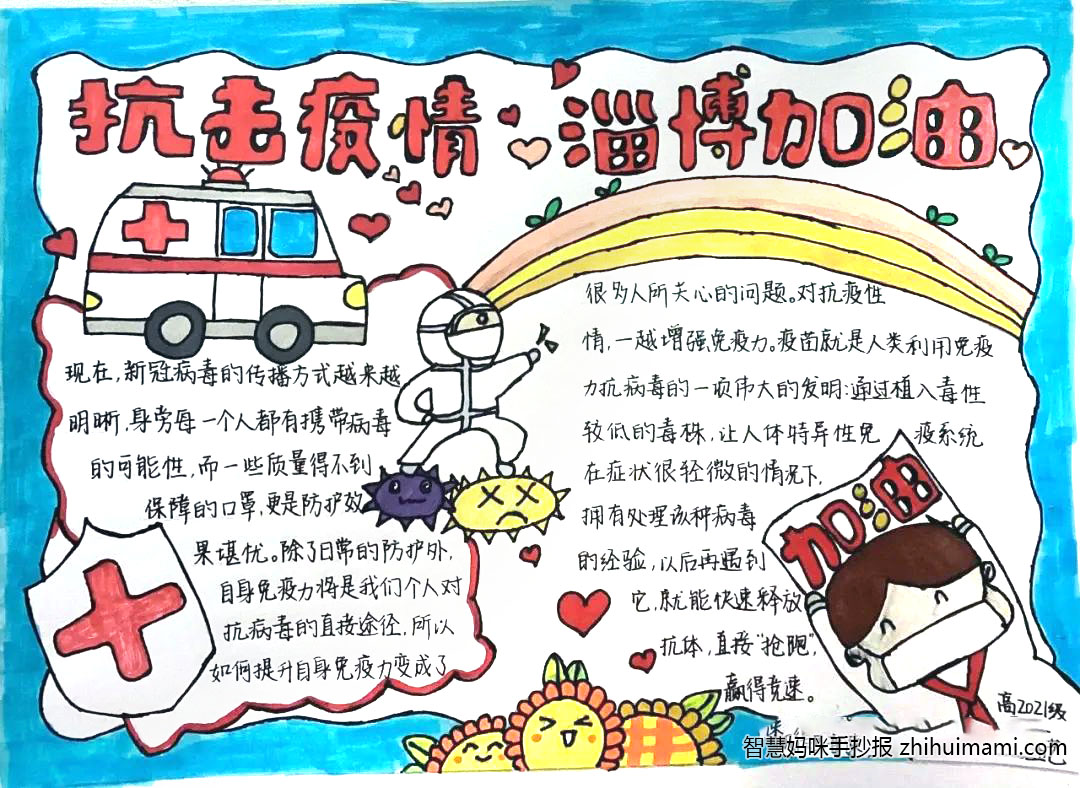 抗击疫情 淄博加油
现在，新冠病毒的传播方式越来越
明晰，身旁每一个人都有携带病毒
的可能性，而一些质量得不到
保障的口罩，更是防护效
果堪忧。除了日常的防护外，
自身免疫力将是我们个人对
抗病毒的直接途径，所以
如何提升自身免疫力变成了
很多人所关心的问题。对抗疫性
情，一越增强免疫力。疫苗就是人类利用免疫
力抗病毒的一项伟大的发明：通过植入毒性
较低的毒株，让人体特异性免疫系统
在症状很轻微的情况下，
拥有处理该种病毒
的经验，以后再遇到
它，就能快速释放
抗体，直接“抢跑”，
赢得竞速。
加油
高2021级
智慧妈咪手抄报 zhihuimami.com